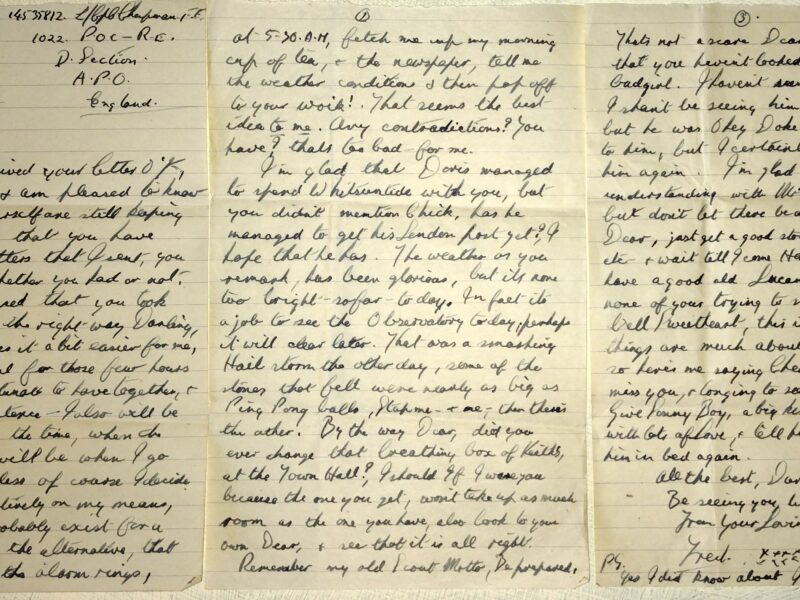 14535812. L/Cpl Chapman. F.E.
1022. P.O.C - R.E.
D. Section.
A.P.O.
England.
ived your letter O'K,
& am pleased to know
rself are still keeping
that you have
tters that I sent, you
hether you had or not.
red that you took
the right way Darling,
es it a bit easier for me,
l for those few hours
tunate to have together, &
lence - I also will be
the time, when the
will be when I go
less of course I decide
tively on my means,
obably exist for a
the alternative, that
the alarm rings,
2
at 5-30. A.M, fetch me up my morning
cup of tea, & the newspaper, tell me
the weather conditions & then pop off
to your work! That seems the best
idea to me. Any contradictions? You
have? thats too bad - for me.
I'm glad that Doris managed
to spend Whitsuntide with you, but
you didn't mention Chick, has he
managed to get his London post yet?, I
hope that he has. The weather as you
remark, has been glorious, but its none
too bright - so far - to day. In fact its
a job to see the Observatory to day, perhaps
it will clear later. That was a smashing
Hail storm the other day, some of the
stones that fell were nearly as big as
Ping Pong balls, Slap me - & me, - then there's
the other. By the way Dear, did you
ever change that breathing box of Keiths,
at the Town Hall?, I should if I were you
because the one you get, wont take up as much
room as the one you have, also look to your
own Dear, & see that it is all right.
Remember my old Scout Motto, Be prepared.
3.
Thats not a scare Dear
that you haven't looked
badgirl. I haven't
I shan't be seeing him
but he was Okey Doke
to him, but I certainl
him again. I'm glad
understanding with
but don't let there be a
Dear, just get a good sto
etc & wait till I come H
have a good old
none of your trying to
Well Sweetheart, this i
things are much about
so here's me saying Che
miss you, & longing to s
Give Sonny Boy, a big
with lots of Love, & tell h
him in bed again.
All the best, Dar
Be seeing you,
From Your Lovi
Fred. xxxx
P.S. Yes I did know about